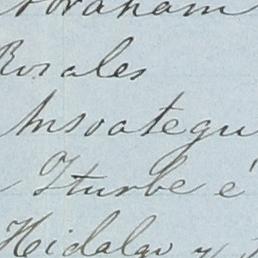 Abraham
Rosales
Ansoategu
Iturbe é
Hidalgo y